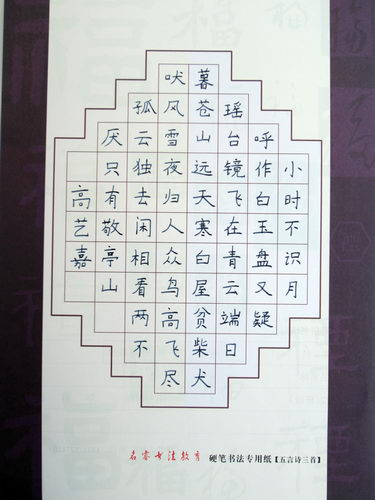 小时不识月
呼作白玉盘又疑
瑶台镜飞在青云端日
暮苍山远天寒白屋贫柴犬
吠风雪夜归人众鸟高飞尽
孤云独去闲相看两不
厌只有敬亭山
高艺嘉
名睿书法教育 硬笔书法专用纸【五言诗三首】